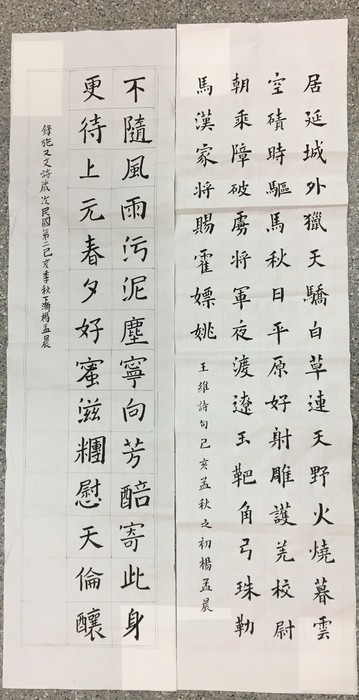 居延城外獵天驕白草連天野火燒暮雲
空磧時驅馬秋日平原好射雕護羌校尉
朝乘障破虜將軍夜渡遼玉靶角弓珠勒
馬漢家將賜霍嫖姚
王維詩句己亥孟秋之初楊孟晨
不隨風雨污泥塵寧向芳醅寄此身
更待上元春夕好蜜滋糰慰天倫釀
錄施又文詩歲次民國第二己亥季秋楊孟晨